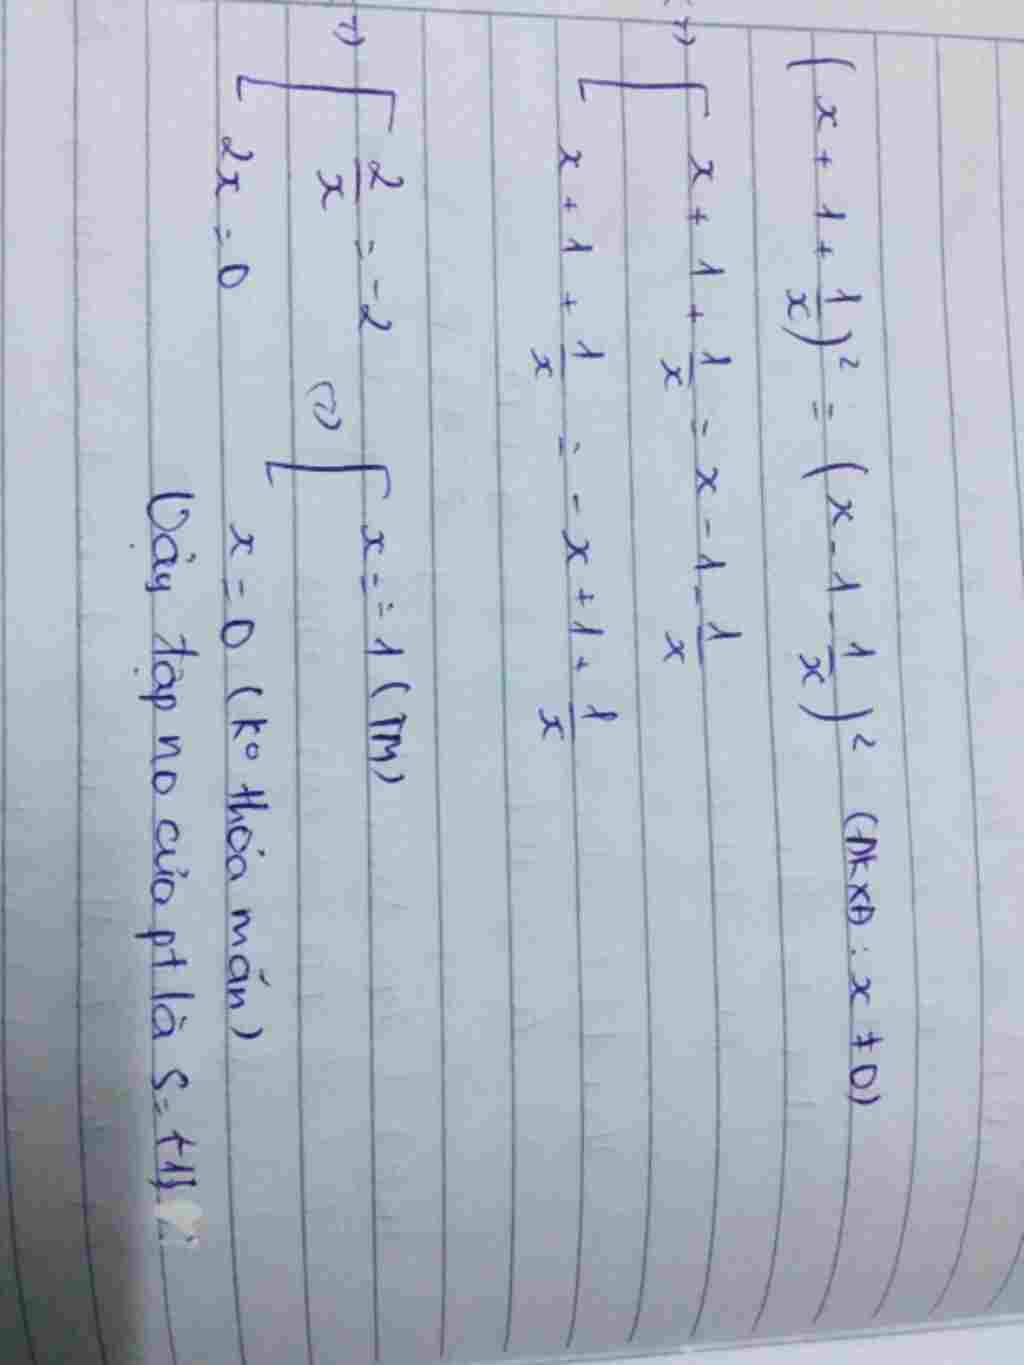 (x + 1 + 1/x)² = (x - 1 - 1/x)² (ĐKXĐ : x ≠ 0)
(=) [ x + 1 + 1/x = x - 1 - 1/x
x + 1 + 1/x = - x + 1 + 1/x
(=) [ 2/x = -2
2x = 0
(=) [ x = -1 (TM)
x = 0 (ko thỏa mãn)
Vậy tập no của pt là S = {1}